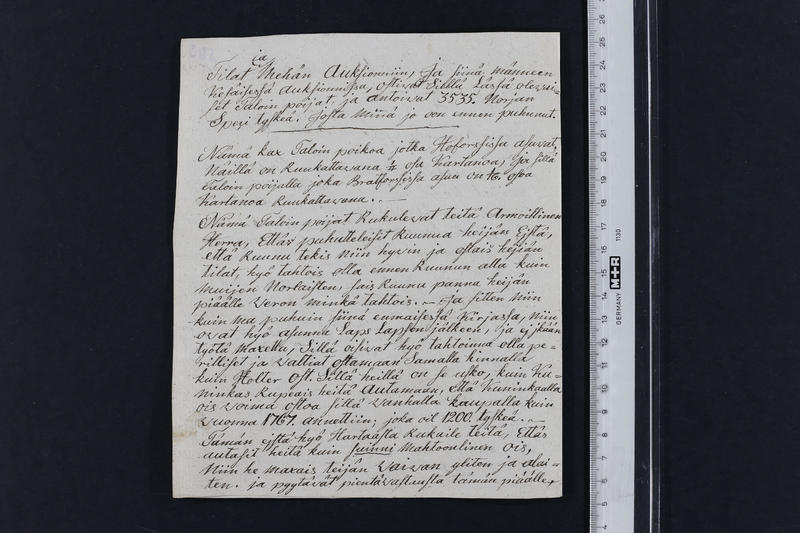 ja
Tilat Mehän Auksionniin, Ja siinä männeen
Kesäisessä Auksionnissa, ostivat Sillä Lässä olevai=
set Taloin poijat, ja antoivat 3535. Norjan
Spesi tysskeä. Josta Minä jo oon ennen puhunut.
Nämä kax Taloin poikoa jotka Hoforsissa asuvat,
Näillä on Ruukattavana ¼ osa Kartanoa, Ja sillä
Taloin poijalla joka Bratforsissa asuu on 1/6. osoa
Kartanoa Ruukattavana. —
Nämä Taloin poijat Rukulevat teitä Armoillinen
Herra, Ettäs puhutteleisit Ruunua heijän Eistä,
että Ruunu tekis niin hyvin ja ostais heijän
tilat, hyö tahtois olla ennen Ruunun alla kuin
muijen Norlaisten, Sais Ruunu panna heijän
piäälle Veron minkä tahtois. — Ja sitten niin
kuin ma puhuin siinä enmaisessä Kirjassa, niin
ovat hyö asunna Laps Lapsen jälkeen, ja ej kään
työtä maxettu, Sillä oisivat hyö tahtoinna olla pe=
rilliset ja Valtiat ostamaan Samalla hinnalla
kuin Holter Ost. Sillä heillä on se usko, kuin Ku=
ninkas Rupeais heitä Autamaan, että Kuninkaalla
ois voima ostoa sillä vanhalla kaupalla kuin
vuonna 1767. annettiin; joka oil 1200. tysskeä. —
Tämän eistä hyö Hartaasta Rukuile teitä, Ettäs
autasit heitä kuin suinni Mahtoonlinen ois,
Niin he maxais teijän Vaivan yliten ja alai=
ten. ja pyytävät pientä vastusta tämän piäälle,
GERMANY M+R 1130
26
25
24
23
22
21
20
19
18
17
16
15
14
13
12
11
10
9
8
7
6
5
4
3
2
1